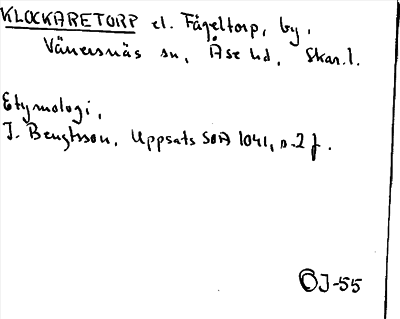 KLOCKARETORP el. Fågeltorp, by,
Vänersnäs sn, Åse hd, Skar.l.
Etymologi,
J. Bengtsson, Uppsats SOA 1041, s. 2 f.
OJ-55